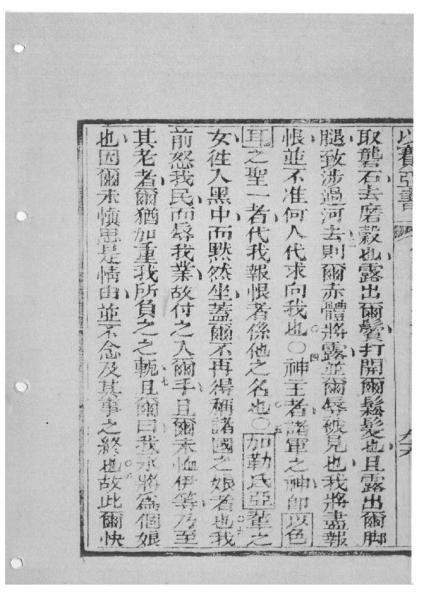 以賽亞書
取礱石去磨穀也露出爾鬢打開爾鬆髮也且露出爾脚
腿致涉過河去則爾赤體將露並爾辱被見也我將盡報
恨並不准何人代求向我也〇神王者諸軍之神即以色
耳之聖一者代我報恨者係他之名也〇加勒氏亞輩之
女徃入黑中而黙然坐蓋爾不再得稱諸國之娘者也我
前怒我民而辱我業故付之入爾手且爾未恤伊等乃至
其老者爾猶加重我所負之之軛且爾曰我永將為個娘
也因爾未慎思是情由並不念及其事之終也故此爾快